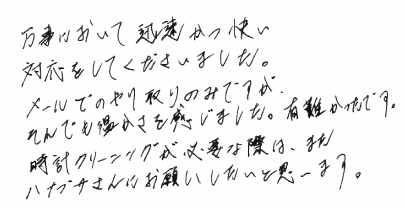 万事において迅速かつ快い
対応をしてくださいました。
メールでのやり取りのみですが、
そんでも温かさを感じました。有難かったです。
時計クリーニングが必要な際は、また
ハナブサさんにお願いしたいと思います。